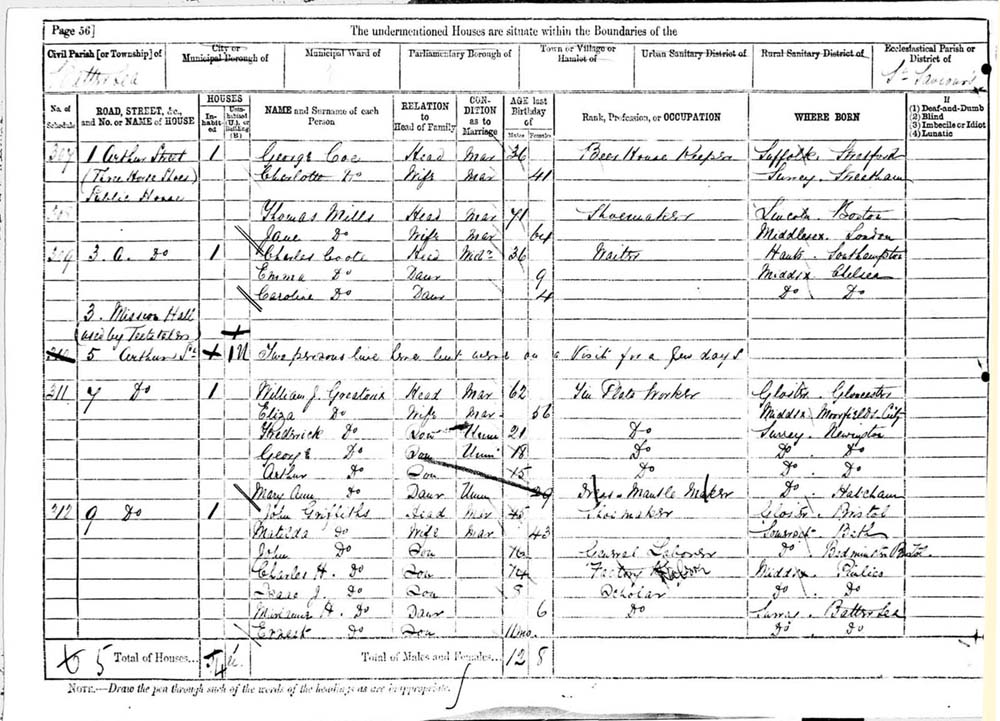 Page 56] The undermentioned Houses are situate within the Boundaries of the
Civil Parish [or Township] of City or Municipal Borough of Municipal Ward of Parliamentary Borough of Town or Village or Hamlet of Urban Sanitary District of Rural Sanitary District of Ecclesiastical Parish or District of
Battersea St Saviours
No. of Schedule ROAD, STREET, &c., and No. or NAME of HOUSE HOUSES Inhabited Uninhabited (U.), or Building (B.) NAME and Surname of each Person RELATION to Head of Family CONDITION as to Marriage AGE last Birthday of Males Females Rank, Profession, or OCCUPATION WHERE BORN If (1) Deaf-and-Dumb (2) Blind (3) Imbecile or Idiot (4) Lunatic
307 1 Arthur Street 1 George Coe Head Mar 36 Beer House Keeper Suffolk
(Three Horse Shoes) Charlotte Do Wife Mar 41 Surrey Streatham
Public House
308 Thomas Mills Head Mar 71 Shoemaker Lincoln Boston
Jane Do Wife Mar 64 Middlesex London
309 3. A. Do 1 Charles Coote Head 36 Waiter Hants Southampton
Emma Do Daur 9 Middx Chelsea
Caroline Do Daur 4 Do Do
3. Mission Hall
5 Arthur St 1U Two persons live here but were on a Visit for a few days
311 7 Do 1 William J. Head Mar 62 Tin Plate Worker Gloster Gloucester
Eliza Do Wife Mar 56 Middx Moorfields City
Frederick Do Son Unm 21 Do Surrey Newington
George Do Son Unm 18 Do Do Do
Arthur Do Son 15 Do Do Do
Mary Ann Do Daur Unm 29 Mantle Maker Do Hatcham
312 9 Do 1 John Griffiths Head Mar 45 Shoemaker Gloster Bristol
Matilda Do Wife Mar 43 Somerset Bath
John Do Son 16 General Laborer Do Bedminster Bristol
Charles H. Do Son 14 Factory Middx Pimlico
Isaac J. Do Son 8 Scholar Do Do
H. Do Daur 6 Do Surrey Battersea
Ernest Do Son 11mo Do Do
5 Total of Houses... 4 Total of Males and Females... 12 8
NOTE.—Draw the pen through such of the words of the headings as are inappropriate.